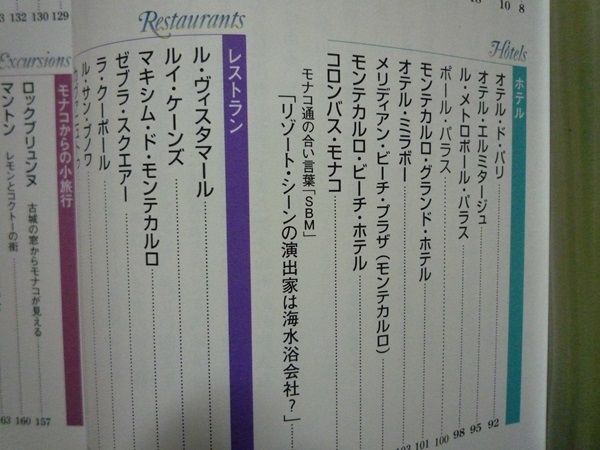 10 8
Hôtels
ホテル
オテル・ド・パリ 92
オテル・エルミタージュ 95
ル・メトロポール・パラス 98
ポール・パラス 100
モンテカルロ・グランド・ホテル 101
オテル・ミラボー
メリディアン・ビーチ・プラザ(モンテカルロ)
モンテカルロ・ビーチ・ホテル
コロンバス・モナコ
モナコ通の合い言葉「SBM」
「リゾート・シーンの演出家は海水浴会社?」
Restaurants
レストラン
ル・ヴィスタマール
ルイ・ケーンズ
マキシム・ド・モンテカルロ
ゼブラ・スクエアー
ラ・クーポール
ル・サン・ブノワ
132 130 129
Excursions
モナコからの小旅行
ロックブリュンヌ 古城の窓からモナコが見える 157
マントン レモンとコクトーの街 160